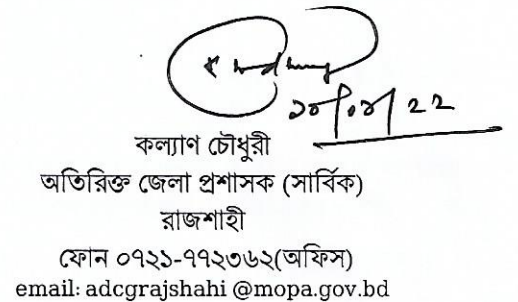 কল্যাণ চৌধুরী
অতিরিক্ত জেলা প্রশাসক (সার্বিক)
রাজশাহী
ফোন ০৭২১-৭৭২৩৬২(অফিস)
email: adcgrajshahi @mopa.gov.bd